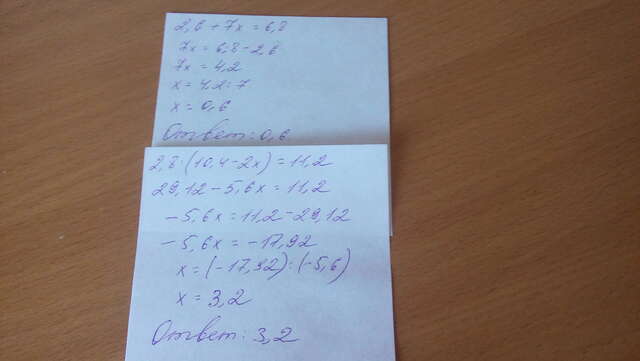 2,6 + 7x = 6,8
7x = 6,8 - 2,6
7x = 4,2
x = 4,2 : 7
x = 0,6
Ответ: 0,6
2,8 · (10,4 - 2x) = 11,2
29,12 - 5,6x = 11,2
-5,6x = 11,2 - 29,12
-5,6x = -17,92
x = (-17,92) : (-5,6)
x = 3,2
Ответ: 3,2